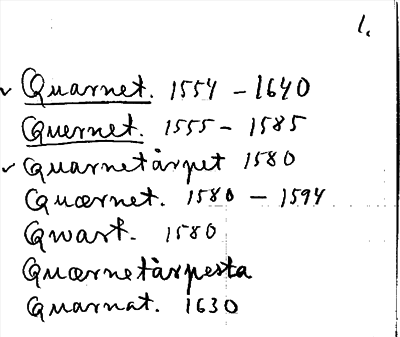 1.
✓ Quarnet. 1554 - 1640
Quernet. 1555 - 1585
✓ Quarnetårpet 1580
Quærnet. 1580 - 1594
Qwart. 1580
Quærnetårpesta
Quarnat. 1630